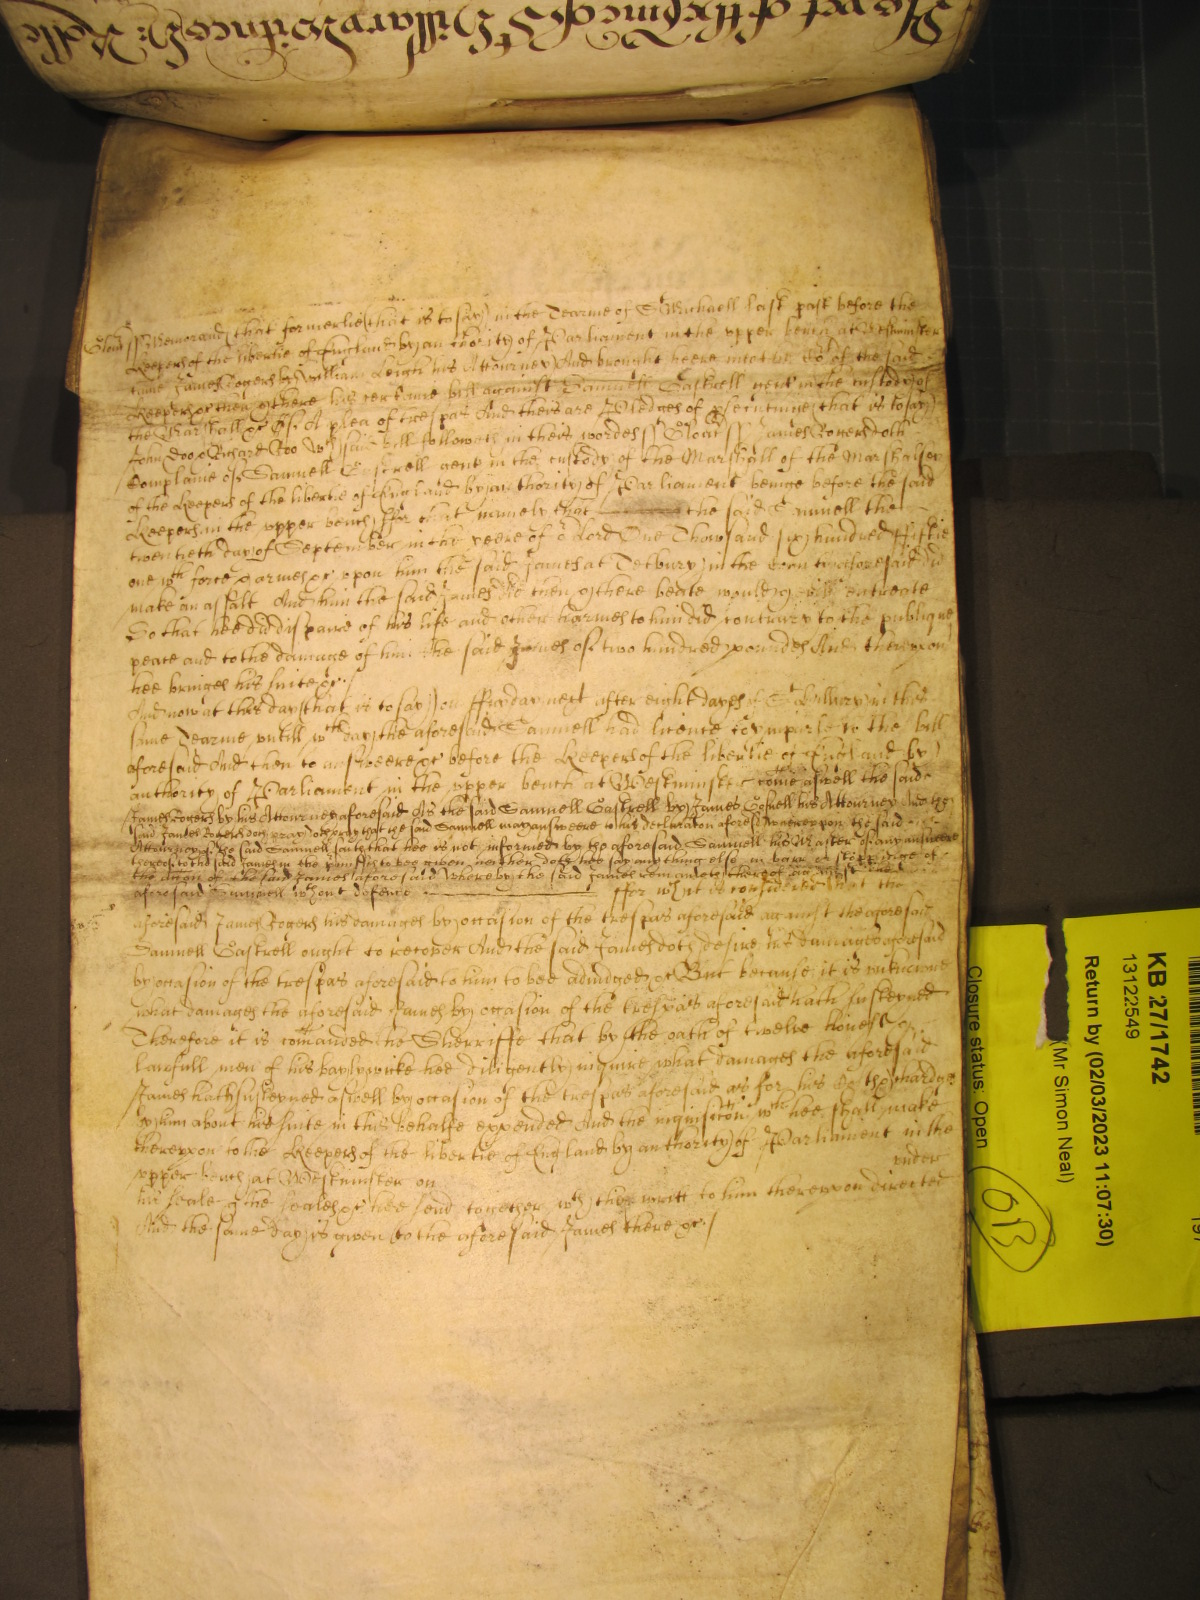 Yet of the Tearme of St Hillary Witnes H: Rolle
Glouc ss Memorand that formerlie (that is to say) in the Tearme of St Michaell last past before the
Keepers of the libertie of England by authority of Parliament in the upper bench at Westminster
came James Rogers by William Leigh his Attourney And brought heere into the Co't of the said
Keepers &c then & there his certaine bill against Samuell Gastrell gent in the custody of
the Marshall &c Of A plea of trespas And there are Pledges of prosecuting (that is to say)
John Doo & Richard Roo Wch said bill followeth in theis wordes ss Glouc ss James Rogers doth
Complaine of Samuell Gastrell gent in the custody of the Marshall of the Marshalsey
of the Keepers of the libertie of England by authority of Parliament beinge before the said
Keepers in the upper bench ffor that namely that the said Samuell the
twentieth day of September in the yeere of o'r Lord One Thowsand six hundred ffiftie
one wth force & armes &c upon him the said James at Tetbury in the Countie aforesaid did
make an assalt And him the said James did then & there beate wound & evill entreate
So that hee did dispaire of his life and other harmes to him did contrary to the publique
peace and to the damage of him the said James of two hundred poundes And thereupon
hee bringes his suite &c /
And now at this day (that is to say) on ffryday next after eight dayes of St Hillary in this
same Tearme untill wch day the aforesaid Samuell had licence to imparle to the bill
aforesaid And then to answeere &c before the Keepers of the libertie of England by
authority of Parliament in the upper bench at Westminster come aswell the said
James Rogers by his Attourney aforesaid As the said Samuell Gastrell by James Cosnell his Attourney And the
said James Rogers doth pray that the said Samuell may answeere to his declaration aforesaid whereupon the said
Attourney of the said Samuell saith that hee is not informed by the aforesaid Samuell his Master of any answeere
thereof to the said James in the premisses to bee given neither doth hee say any thing else in barr or stoppinge of
the action of the said James aforesaid whereby the said James remaineth thereof against the
aforesaid Samuell wthout defence ffor wch it is considered that the
aforesaid James Rogers his damages by occasion of the trespas aforesaid against the aforesaid
Samuell Gastrell ought to recover And the said James doth desire his damages aforesaid
by occasion of the trespas aforesaid to him to bee adiudged &c But because it is unknowne
what damages the aforesaid James by occasion of the trespas aforesaid hath susteyned
Therefore it is comanded the Sherriffe that by the oath of twelve honest &
lawfull men of his bayliwicke hee diligently inquire what damages the aforesaid
James hath susteyned aswell by occasion of the trespas aforesaid as for his Costs & chardges
by him about his suite in this behalfe expended And the inquisicon wch hee shall make
thereupon to the Keepers of the libertie of England by authority of Parliament in the
upper bench at Westminster on under
his seale & the seales &c hee send together wth the writt to him thereupon directed
And the same day is given to the aforesaid James there &c /
KB 27/1742
13122549
Return by (02/03/2023 11:07:30)
(Mr Simon Neal)
Closure status: Open
OB